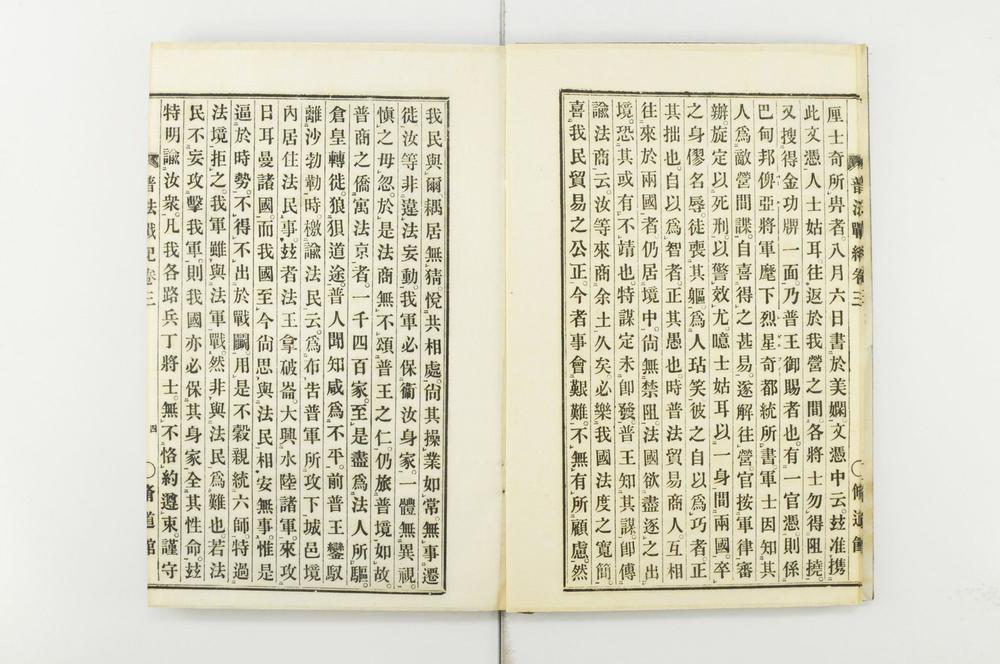 普法戰紀卷三
脩道館
厘士奇所畀者。八月六日書於美嫻文憑中云。玆准携
此文憑人士姑耳往返於我營之間各將士勿得阻撓。
又搜得金功牌一面。乃普王御賜者也。有一官憑則係
巴甸邦俾亞將軍麾下烈星奇都統所書。軍士因知其
人爲敵營間諜。自喜得之甚易。遂解往營官按軍律審
辦。旋定以死刑。以警效尤。噫士姑耳以一身間兩國。卒
之身僇名辱。徒喪其軀。爲人玷笑。彼之自以爲巧者。正
其拙也。自以爲智者。正其愚也。時普法貿易商人。互相
往來於兩國者仍居境中。尙無禁阻。法國欲盡逐之出
境。恐其或有不靖也。特謀定未卽發。普王知其謀。卽傳
諭法商云。汝等來商余土久矣。必樂我國法度之寬簡
喜我民貿易之公正。今者事會艱難。不無有所顧慮。然
我民與爾耦居無猜。悅其相處。尙其操業如常。無事遷
徙。汝等非違法妄動。我軍必保衞汝身家。一體無異視。
愼之毋忽。於是法商無不頌普王之仁。仍旅普境如故。
普商之僑寓法京者。一千四百家。至是盡爲法人所驅。
倉皇轉徙。狼狽道途。普人聞知咸爲不平。前普王鑾馭
離沙勃勒時檄諭法民云。爲布吿普軍所攻下城邑境
內居住法民事。玆者法王拿破崙。大興水陸諸軍。來攻
日耳曼諸國。而我國至今尙思與法民相安無事。惟是
逼於時勢。不得不出於戰鬭。用是不穀親統六師。特過
法境拒之。我軍雖與法軍戰。然非與法民爲難也。若法
民不妄攻擊我軍。則我國亦必保其身家。全其性命。玆
特明諭汝衆。凡我各路兵丁將士。無不恪約遵束。謹守
普法戰紀卷三
四
脩道館